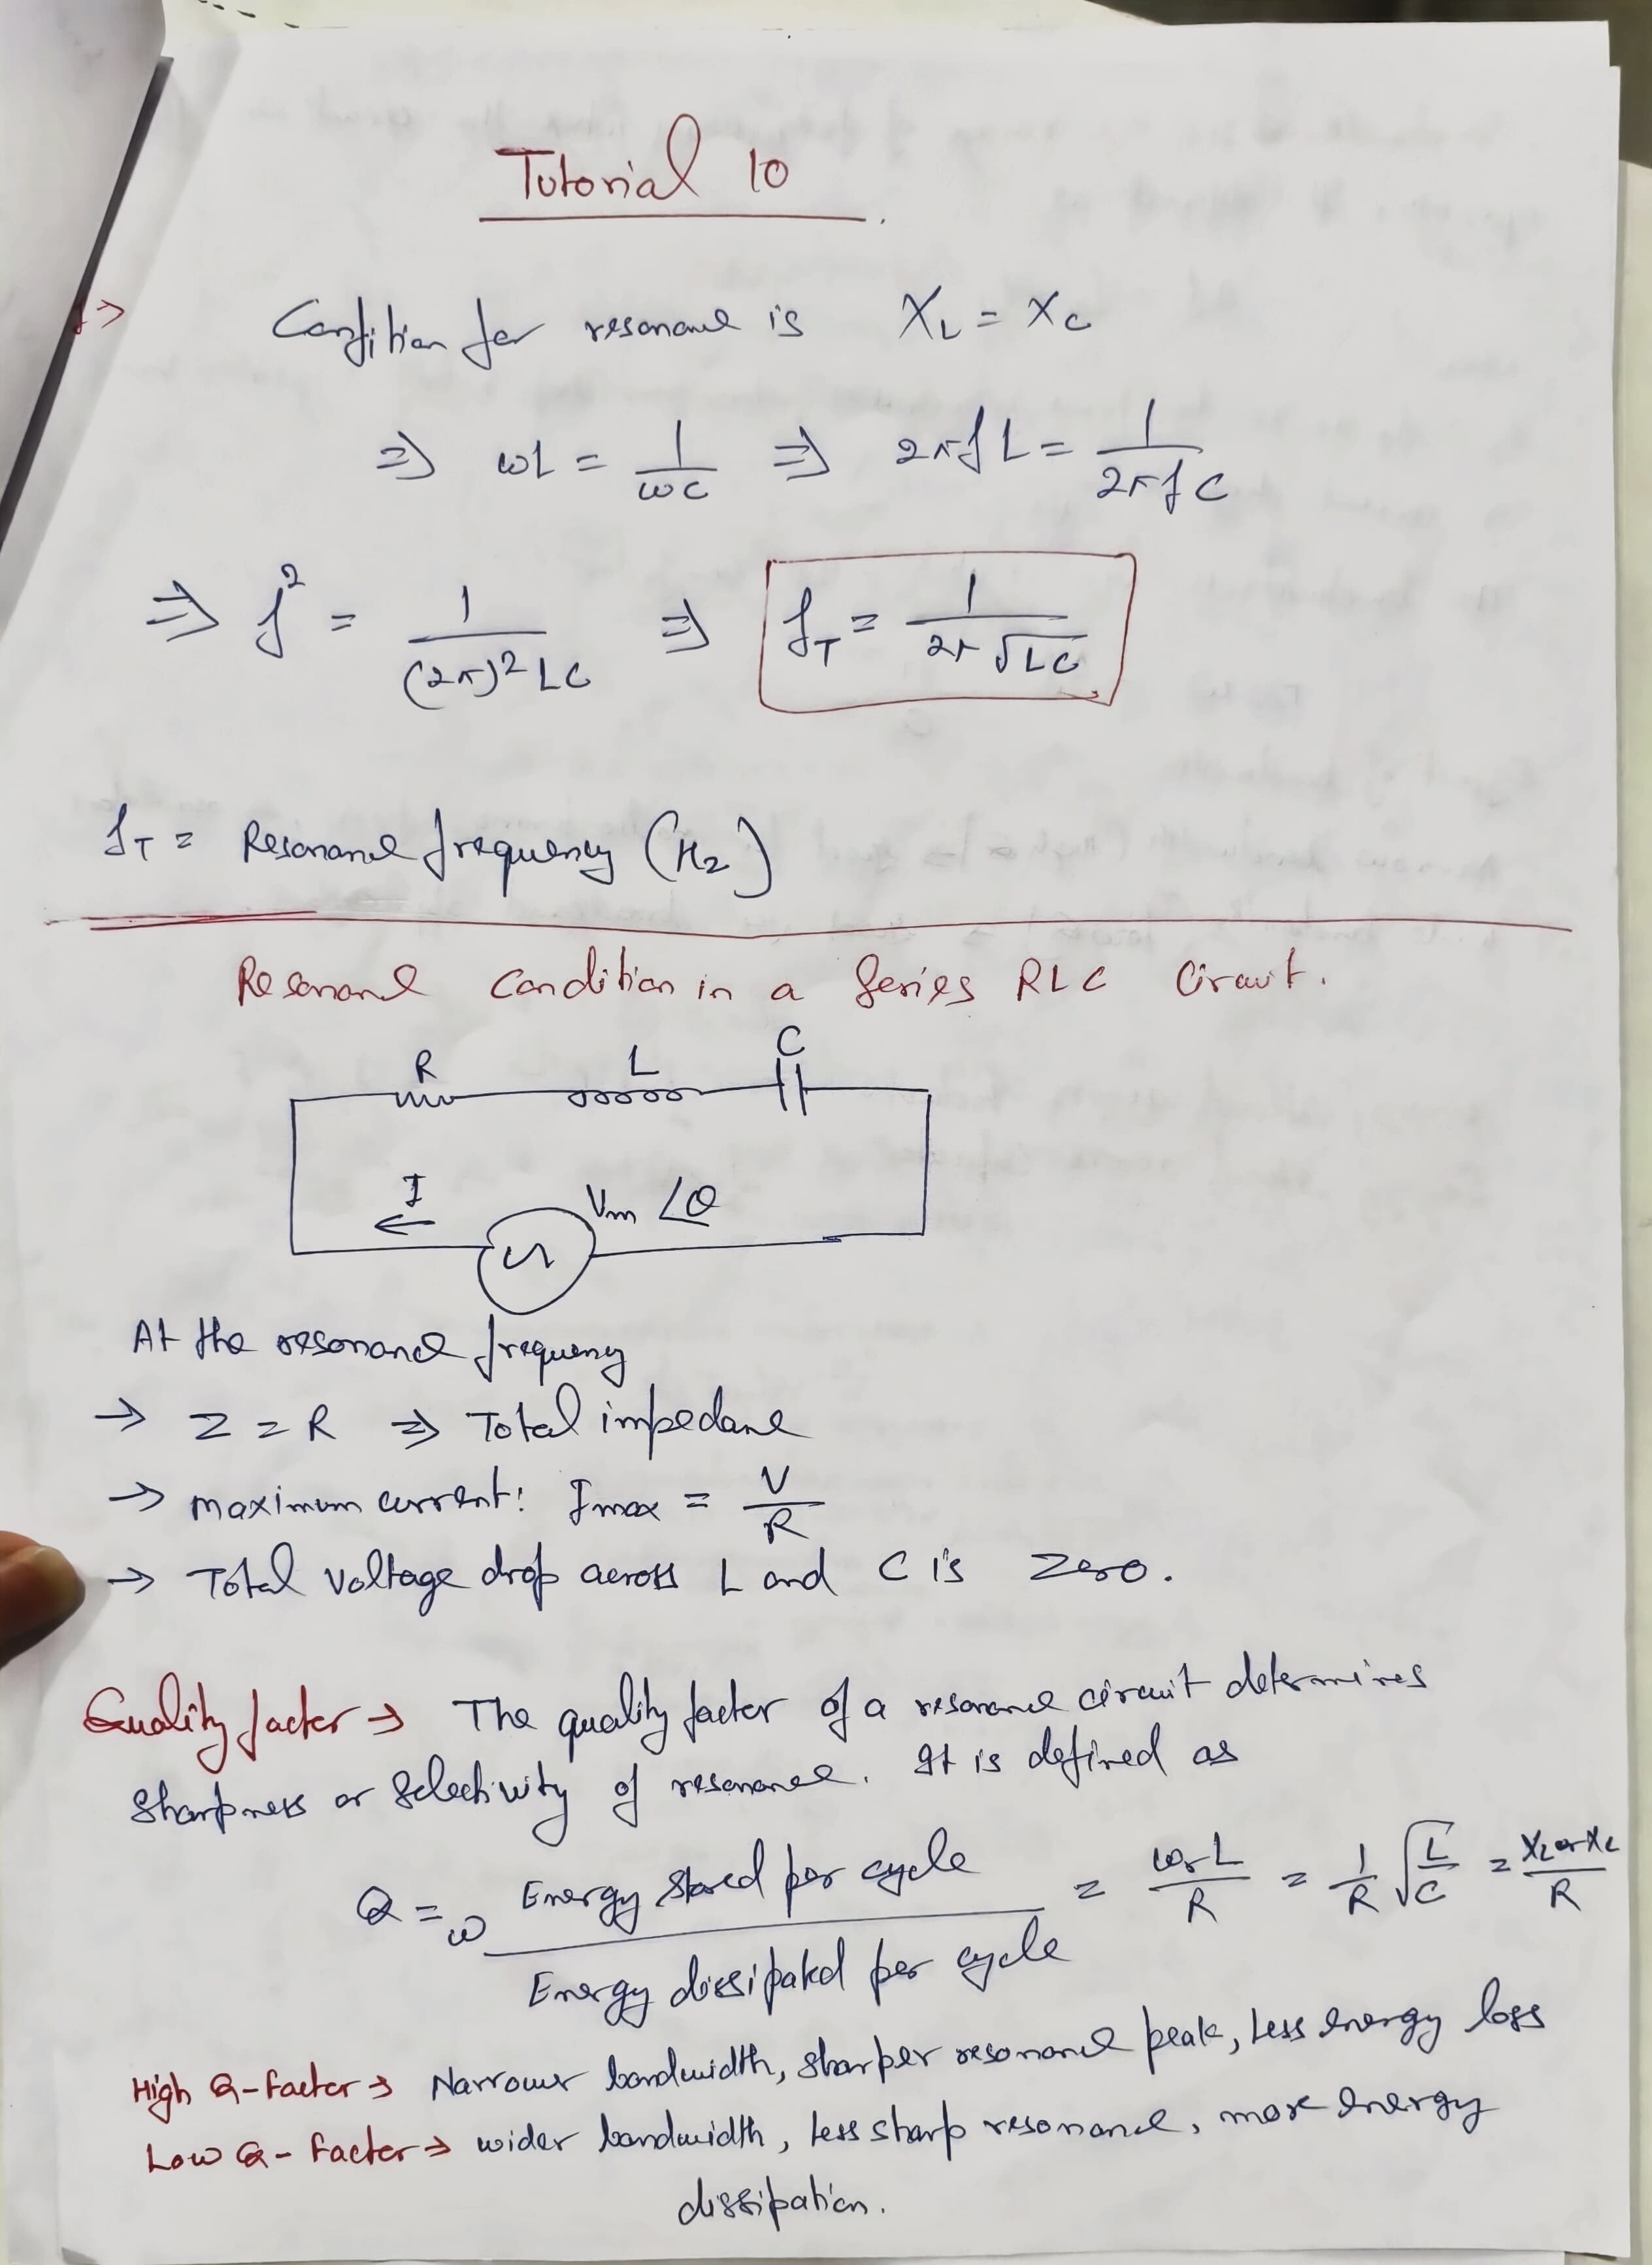 Tutorial 10
1→ Condition for resonance is X_L = X_C
⇒ ωL = 1/ωC ⇒ 2πfL = 1/2πfC
⇒ f² = 1/(2π)²LC ⇒ f_T = 1/2π√LC
f_T = Resonance frequency (Hz)
Resonance condition in a Series RLC Circuit.
R L C
I Vm ∠θ
At the resonance frequency
→ Z = R ⇒ Total impedance
→ maximum current: Imax = V/R
→ Total voltage drop across L and C is Zero.
Quality factor → The quality factor of a resonance circuit determines
Sharpness or Selectivity of resonance. It is defined as
Q = ω Energy stored per cycle / Energy dissipated per cycle = ω_r L/R = 1/R √L/C = X_L or X_C/R
High Q-factor → Narrower bandwidth, sharper resonance peak, Less energy loss
Low Q-factor → wider bandwidth, less sharp resonance, more energy
dissipation.